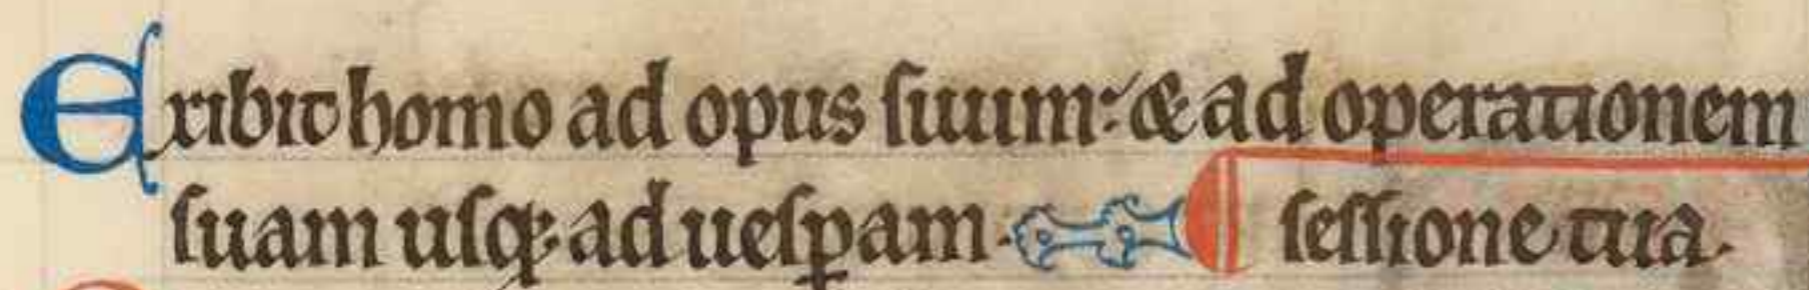 Exibit homo ad opus suum: & ad operationem
suam usqꝫ ad uesꝑam. sessione tua.